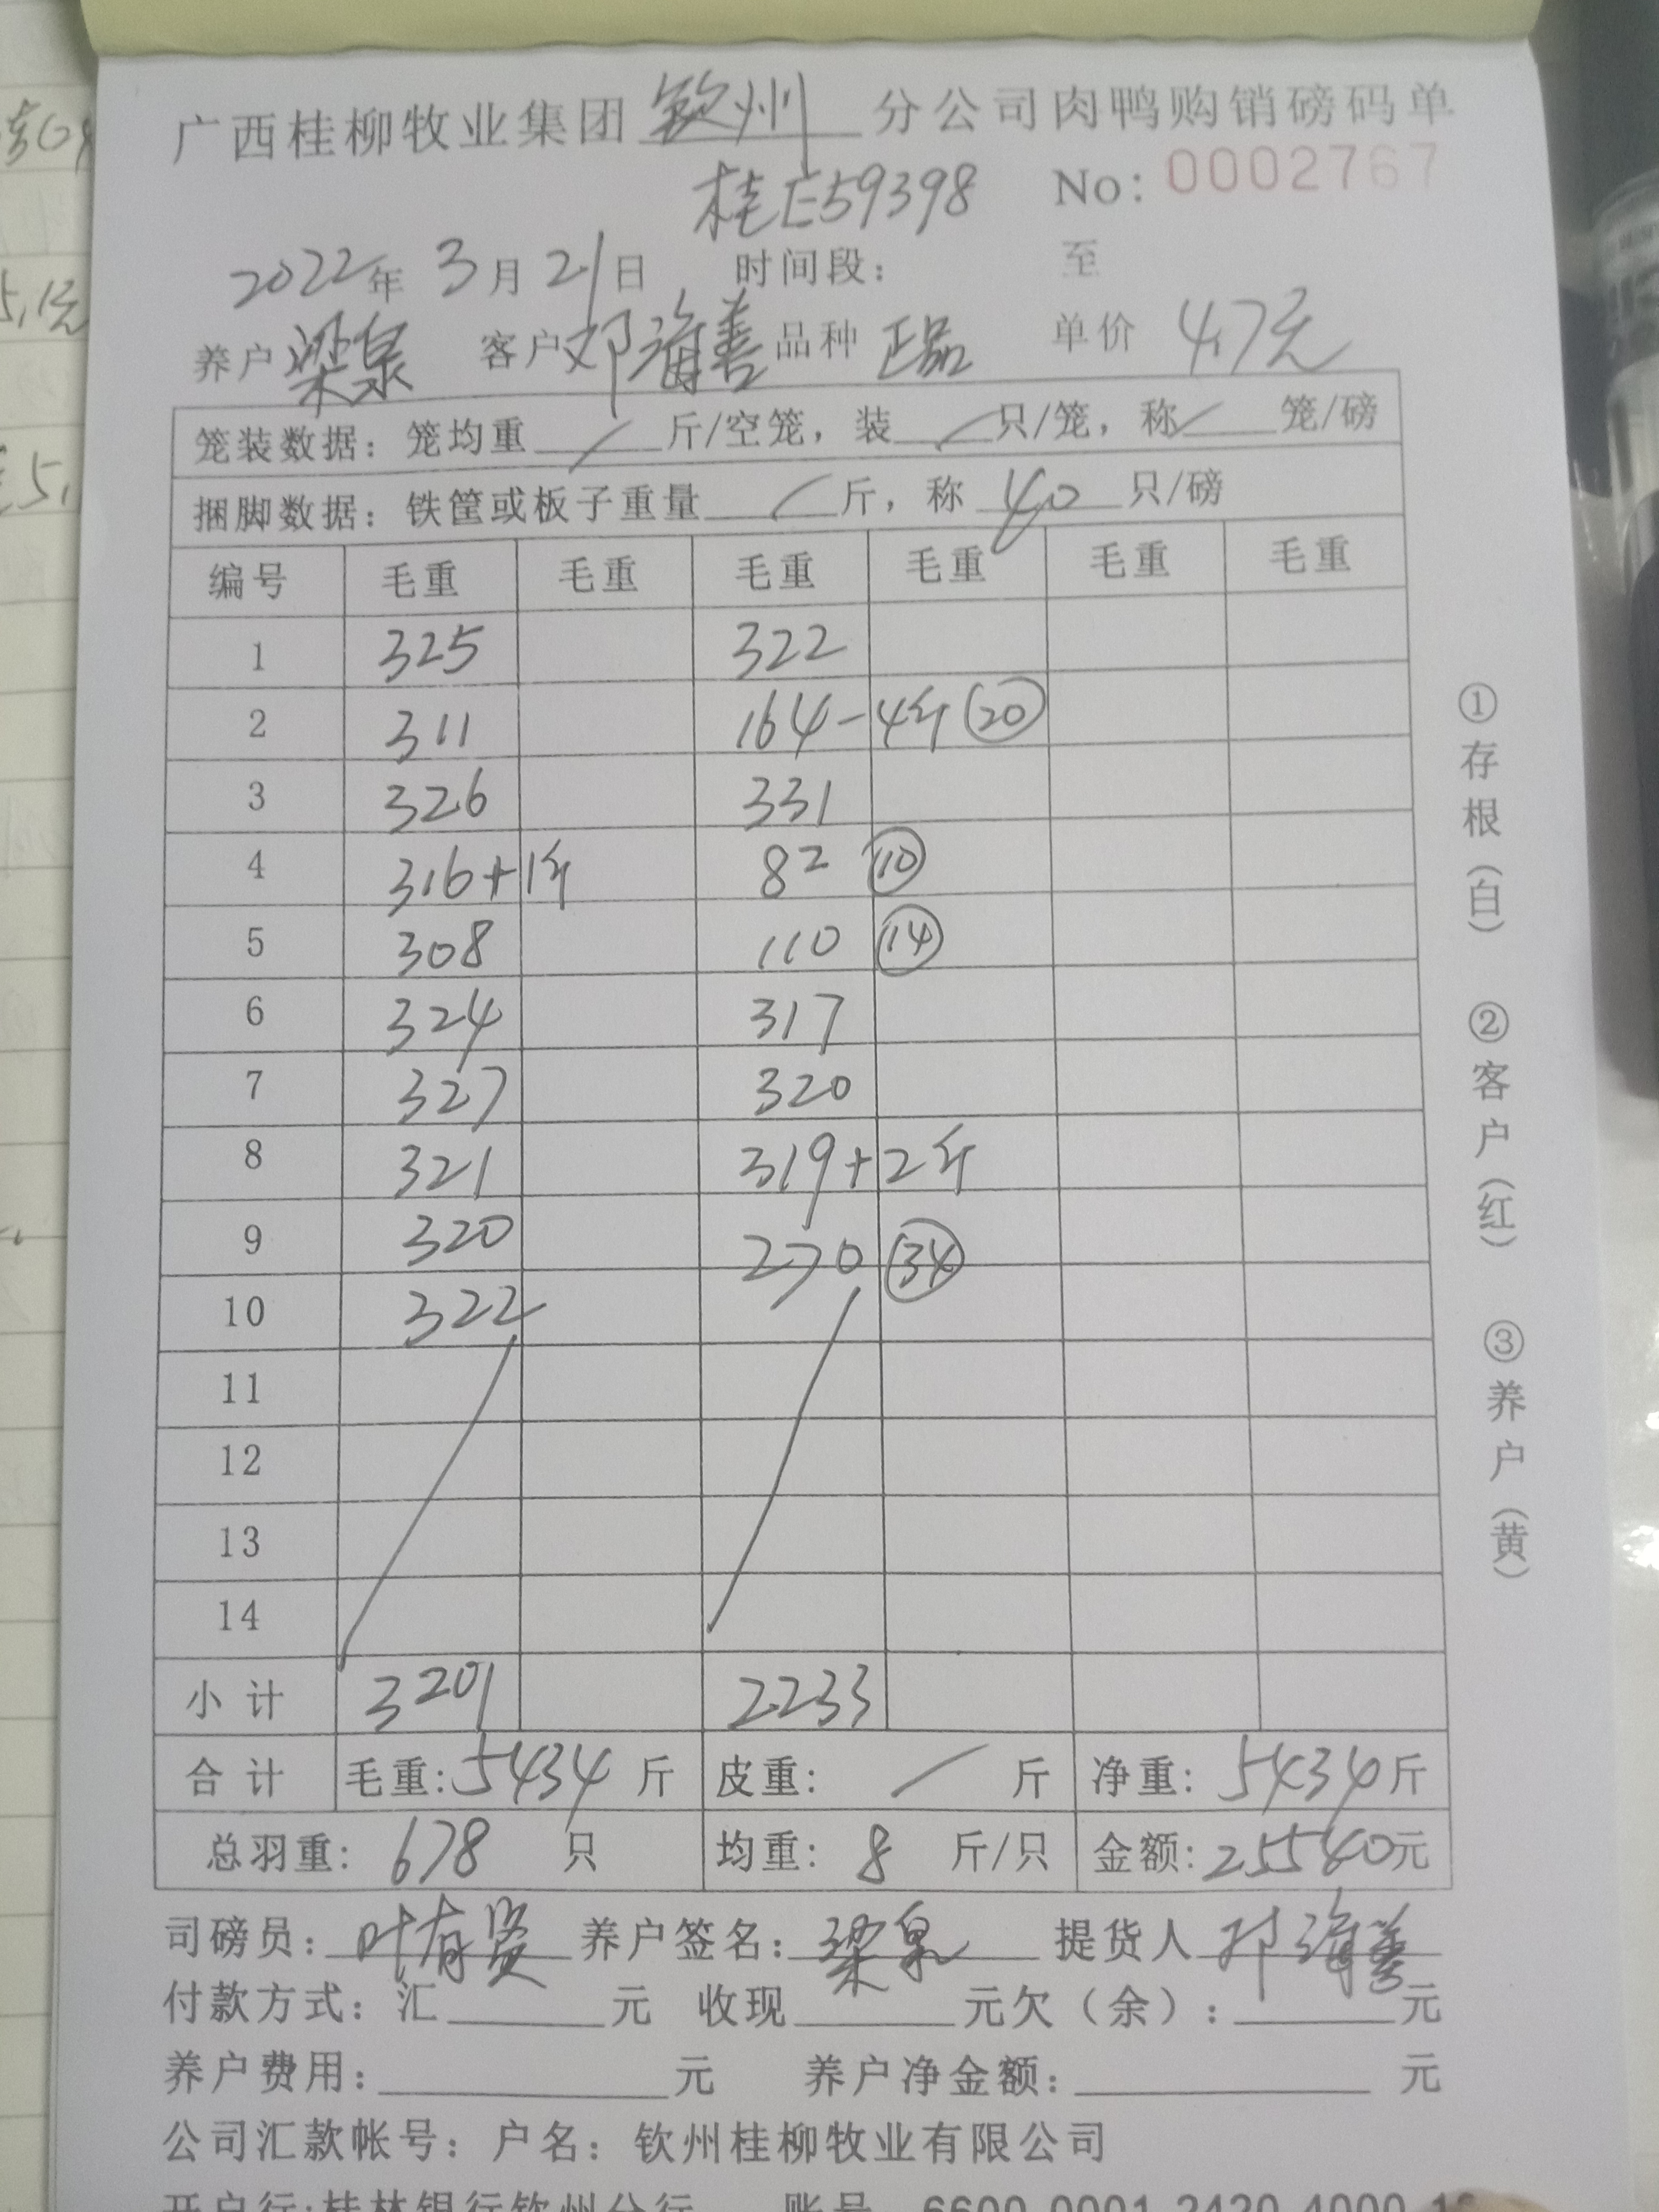 广西桂柳牧业集团 钦州 分公司肉鸭购销磅码单
桂E59398 No: 0002767
2022年 3月 21日 时间段: 至
养户 梁泉 客户 邓海善 品种 正品 单价 4.7元
笼装数据: 笼均重 / 斤/空笼, 装 / 只/笼, 称 / 笼/磅
捆脚数据: 铁筐或板子重量 / 斤, 称 40 只/磅
编号 毛重 毛重 毛重 毛重 毛重 毛重
1 325 322
2 311 164-4斤 ⑳
3 326 331
4 316+1斤 82 ⑩
5 308 110 ⑭
6 324 317
7 327 320
8 321 319+2斤
9 320 270 ㉞
10 322
11
12
13
14
小计 3201 2233
合计 毛重: 5434 斤 皮重: / 斤 净重: 5434斤
总羽重: 678 只 均重: 8 斤/只 金额: 25540元
司磅员: 叶有贤 养户签名: 梁泉 提货人 邓海善
付款方式: 汇 元 收现 元欠(余): 元
养户费用: 元 养户净金额: 元
公司汇款帐号: 户名: 钦州桂柳牧业有限公司
开户行:桂林银行钦州分行 账号 6600 0001 2430 4000 1
①存根(白) ②客户(红) ③养户(黄)